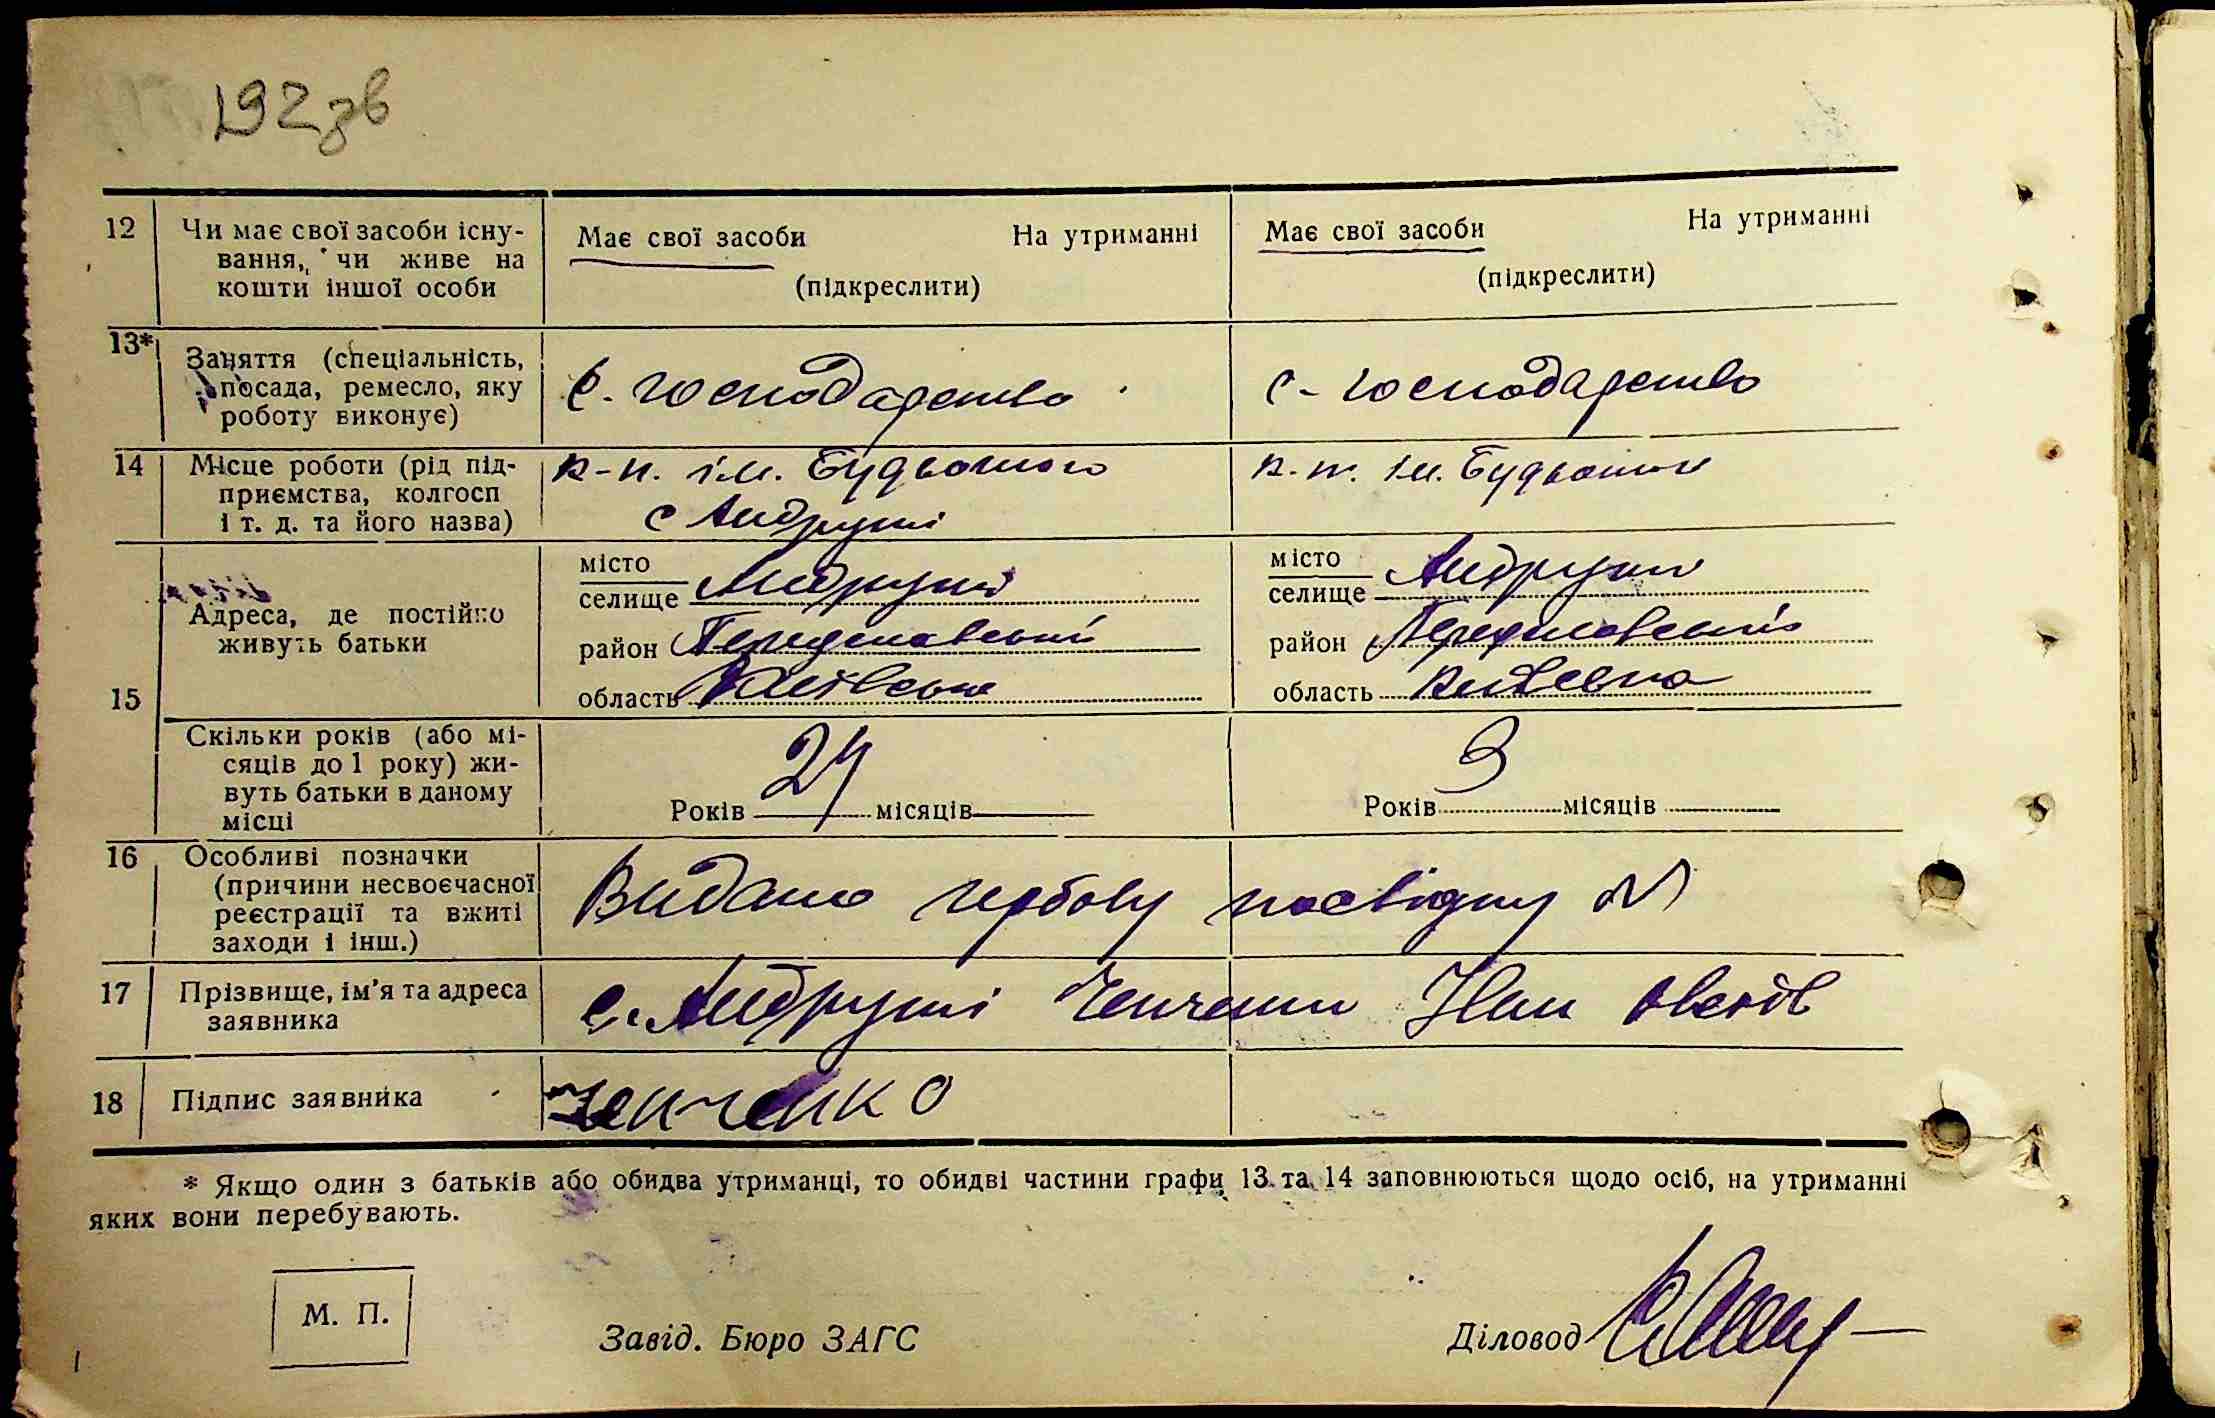 192 зв
12 Чи має свої засоби існу-
вання, чи живе на
кошти іншої особи
Має свої засоби На утриманні
(підкреслити)
Має свої засоби На утриманні
(підкреслити)
13* Заняття (спеціальність,
посада, ремесло, яку
роботу виконує)
С. господарство
С-господарство
14 Місце роботи (рід під-
приємства, колгосп
і т. д. та його назва)
к-п. ім. Будьоного
с Андруші
к.п. ім. Будьоного
15 Адреса, де постійно
живуть батьки
місто
селище Андруші
район Переяславський
область Київська
місто
селище Андруші
район Переяславський
область Київська
Скільки років (або мі-
сяців до 1 року) жи-
вуть батьки в даному
місці
Років 24 місяців
Років 3 місяців
16 Особливі позначки
(причини несвоєчасної
реєстрації та вжиті
заходи і інш.)
Видано гербову посвідку №
17 Прізвище, ім'я та адреса
заявника
с. Андруші Ченченко Іван
18 Підпис заявника
Ченченко
* Якщо один з батьків або обидва утриманці, то обидві частини графи 13 та 14 заповнюються щодо осіб, на утриманні
яких вони перебувають.
М. П.
Завід. Бюро ЗАГС
Діловод